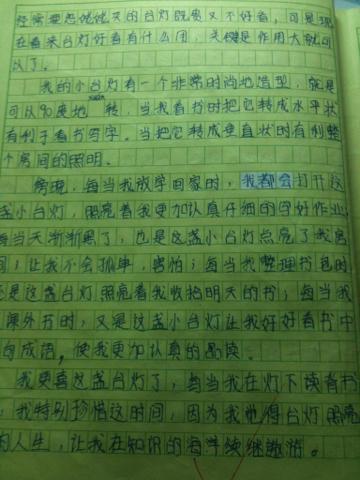 经常埋怨姥姥买的台灯既贵又不好看，可是现
在看来台灯好看有什么用，关键是作用大就可
以了。
我的小台灯有一个非常时尚地造型，就是
可以90度地 转，当我看书时把它转成水平状
有利于看书写字。当把它转成垂直状时有利整
个房间的照明。
傍晚，每当我放学回家时，我都会打开这
盏小台灯，照亮着我更加认真仔细的写好作业；
每当天渐渐黑了，也是这盏小台灯点亮了我房
间；让我不会孤单，害怕；每当我整理书包时
还是这盏台灯照亮着我收拾明天的书；每当我
课外书时，又是这盏小台灯让我好好看书中
的成语，使我更加认真的品读。
我更喜这盏台灯了，每当我在灯下读着书
，我特别珍惜这时间，因为我觉得台灯照亮
的人生，让我在知识的海洋续继遨游。